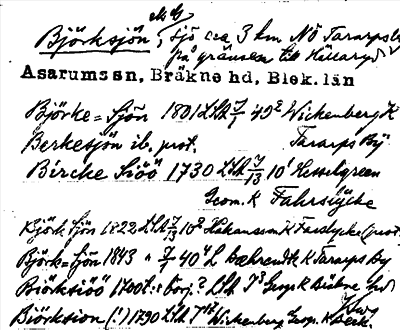 Björksjön, sjö ca 3 km NÖ Tararps
på gränsen till Hällaryd
Asarums sn, Bräkne hd, Blek. län
Björke=Sjön 1801 LSA 7/1 49² Wickenberg K
Berkesjön ib. prot. Tararps By
Bircke Siöö 1730 LSA 7/13 10¹ Hesselgreen
Geom. K Fahrsiycke
Björk Sjön 1822 LSA 7/13 10² Håkansson K Farslycke (prot.
Björk=Sjön 1843 " 7/1 40⁴ L. Bæhrendtz K Tararps By
Biörksiöö 1700t:s börj.? LSA 7³ Geogr K Bräkne hd
Biörksion (!) 1790 LSA 7 Wickenberg Geogr. K Blek